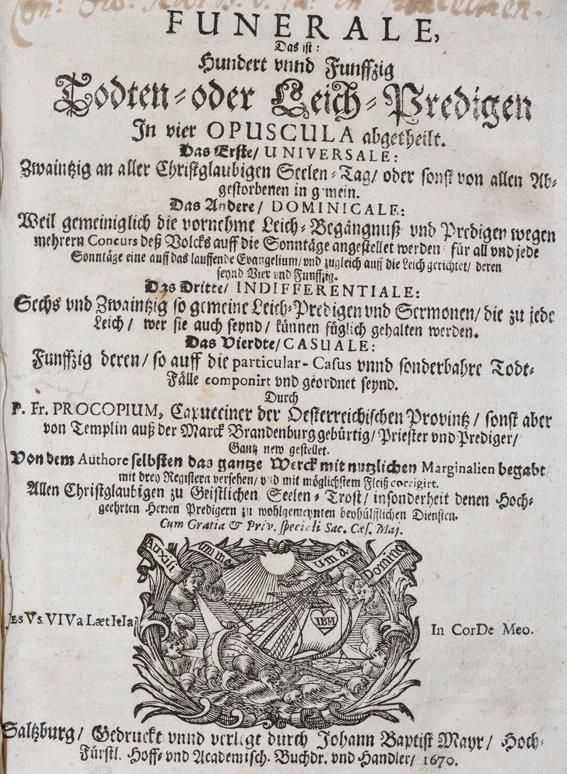 FUNERALE,
Das ist:
Hundert vnnd Funffzig
Todten-oder Leich-Predigen
In vier OPUSCULA abgetheilt.
Das Erste/ UNIVERSALE:
Zwaintzig an aller Christglaubigen Seelen-Tag/ oder sonst von allen Ab-
gestorbenen in g'mein.
Das Andere/ DOMINICALE:
Weil gemeiniglich die vornehme Leich-Begängnuß vnd Predigen wegen
mehrern Concurs deß Volcks auff die Sonntäge angestellet werden/ für all vnd jede
Sonntäge eine auff das lauffende Evangelium/ vnd zugleich auff die Leich gerichtet/ deren
seynd Vier vnd Funffzig.
Das Dritte/ INDIFFERENTIALE:
Sechs vnd Zwaintzig so gemeine Leich-Predigen vnd Sermonen/ die zu jede
Leich/ wer sie auch seynd/ können füglich gehalten werden.
Das Vierdte/ CASUALE:
Funffzig deren/ so auff die particular-Casus vnnd sonderbahre Todt-
Fälle componirt vnd geordnet seynd.
Durch
P. Fr. PROCOPIUM, Capuciner der Oesterreichischen Provintz/ sonst aber
von Templin auß der Marck Brandenburg gebürtig/ Priester vnd Prediger/
Gantz new gestellet.
Von dem Authore selbsten das gantze Werck mit nutzlichen Marginalien begabt/
mit drey Registern versehen/ vnd mit möglichstem Fleiß corrigirt.
Allen Christglaubigen zu Geistlichen Seelen-Trost/ insonderheit denen Hoch-
geehrten Herren Predigern zu wohlgemeynten beyhülfflichen Diensten.
Cum Gratia & Priv. speciali Sac. Cæs. Maj.
Auxili um me um a Domino
IesVs VIVa LætItIa
IBM
In CorDe Meo.
Saltzburg/ Gedruckt vnnd verlegt durch Johann Baptist Mayr/ Hoch-
Fürstl. Hoff- vnd Academisch. Buchdr. vnd Handler/ 1670.